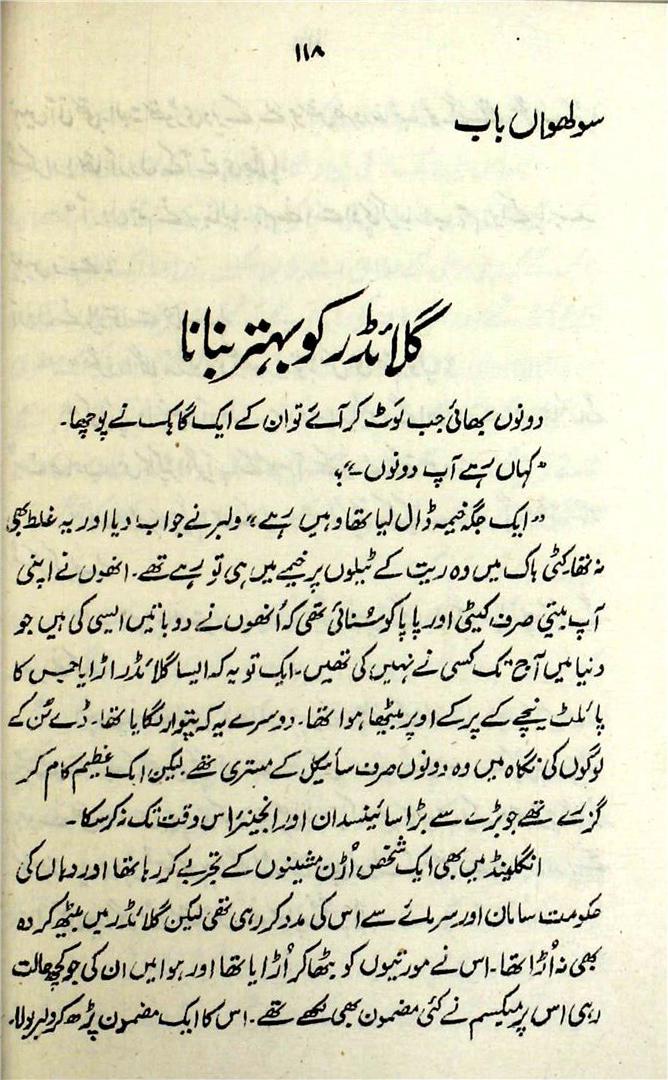 ۱۱۸
سولھواں باب
گلائڈر کو بہتر بنانا
دونوں بھائی جب لوٹ کر آئے تو ان کے ایک گاہک نے پوچھا۔
"کہاں رہے آپ دونوں؟"
"ایک جگہ خیمہ ڈال لیا تھا وہیں رہے" ولبر نے جواب دیا اور یہ غلط بھی
نہ تھا۔ کٹی ہاک میں وہ ریت کے ٹیلوں پر خیمے میں ہی تو رہے تھے۔ انھوں نے اپنی
آپ بیتی صرف کیٹی اور پاپا کو سنائی تھی کہ اُنھوں نے دو باتیں ایسی کی ہیں جو
دنیا میں آج تک کسی نے نہیں کی تھیں۔ ایک تو یہ کہ ایسا گلائڈر اڑایا جس کا
پائلٹ نیچے کے پر کے اوپر بیٹھا ہوا تھا۔ دوسرے یہ کہ پتوار لگایا تھا۔ ڈے ٹن کے
لوگوں کی نگاہ میں وہ دونوں صرف سائیکل کے مستری تھے لیکن ایک عظیم کام کر
گزرے تھے جو بڑے سے بڑا سائینسداں اور انجینئر اس وقت تک نہ کر سکا۔
انگلینڈ میں بھی ایک شخص اُڑن مشینوں کے تجربے کر رہا تھا اور وہاں کی
حکومت سامان اور سرمائے سے اس کی مدد کر رہی تھی لیکن گلائڈر میں بیٹھ کر وہ
بھی نہ اُڑا تھا۔ اس نے مورتیوں کو بٹھا کر اُڑایا تھا اور ہوا میں ان کی جو کچھ حالت
رہی اس پر میکسم نے کئی مضمون بھی لکھے تھے۔ اس کا ایک مضمون پڑھ کر ولبر بولا۔